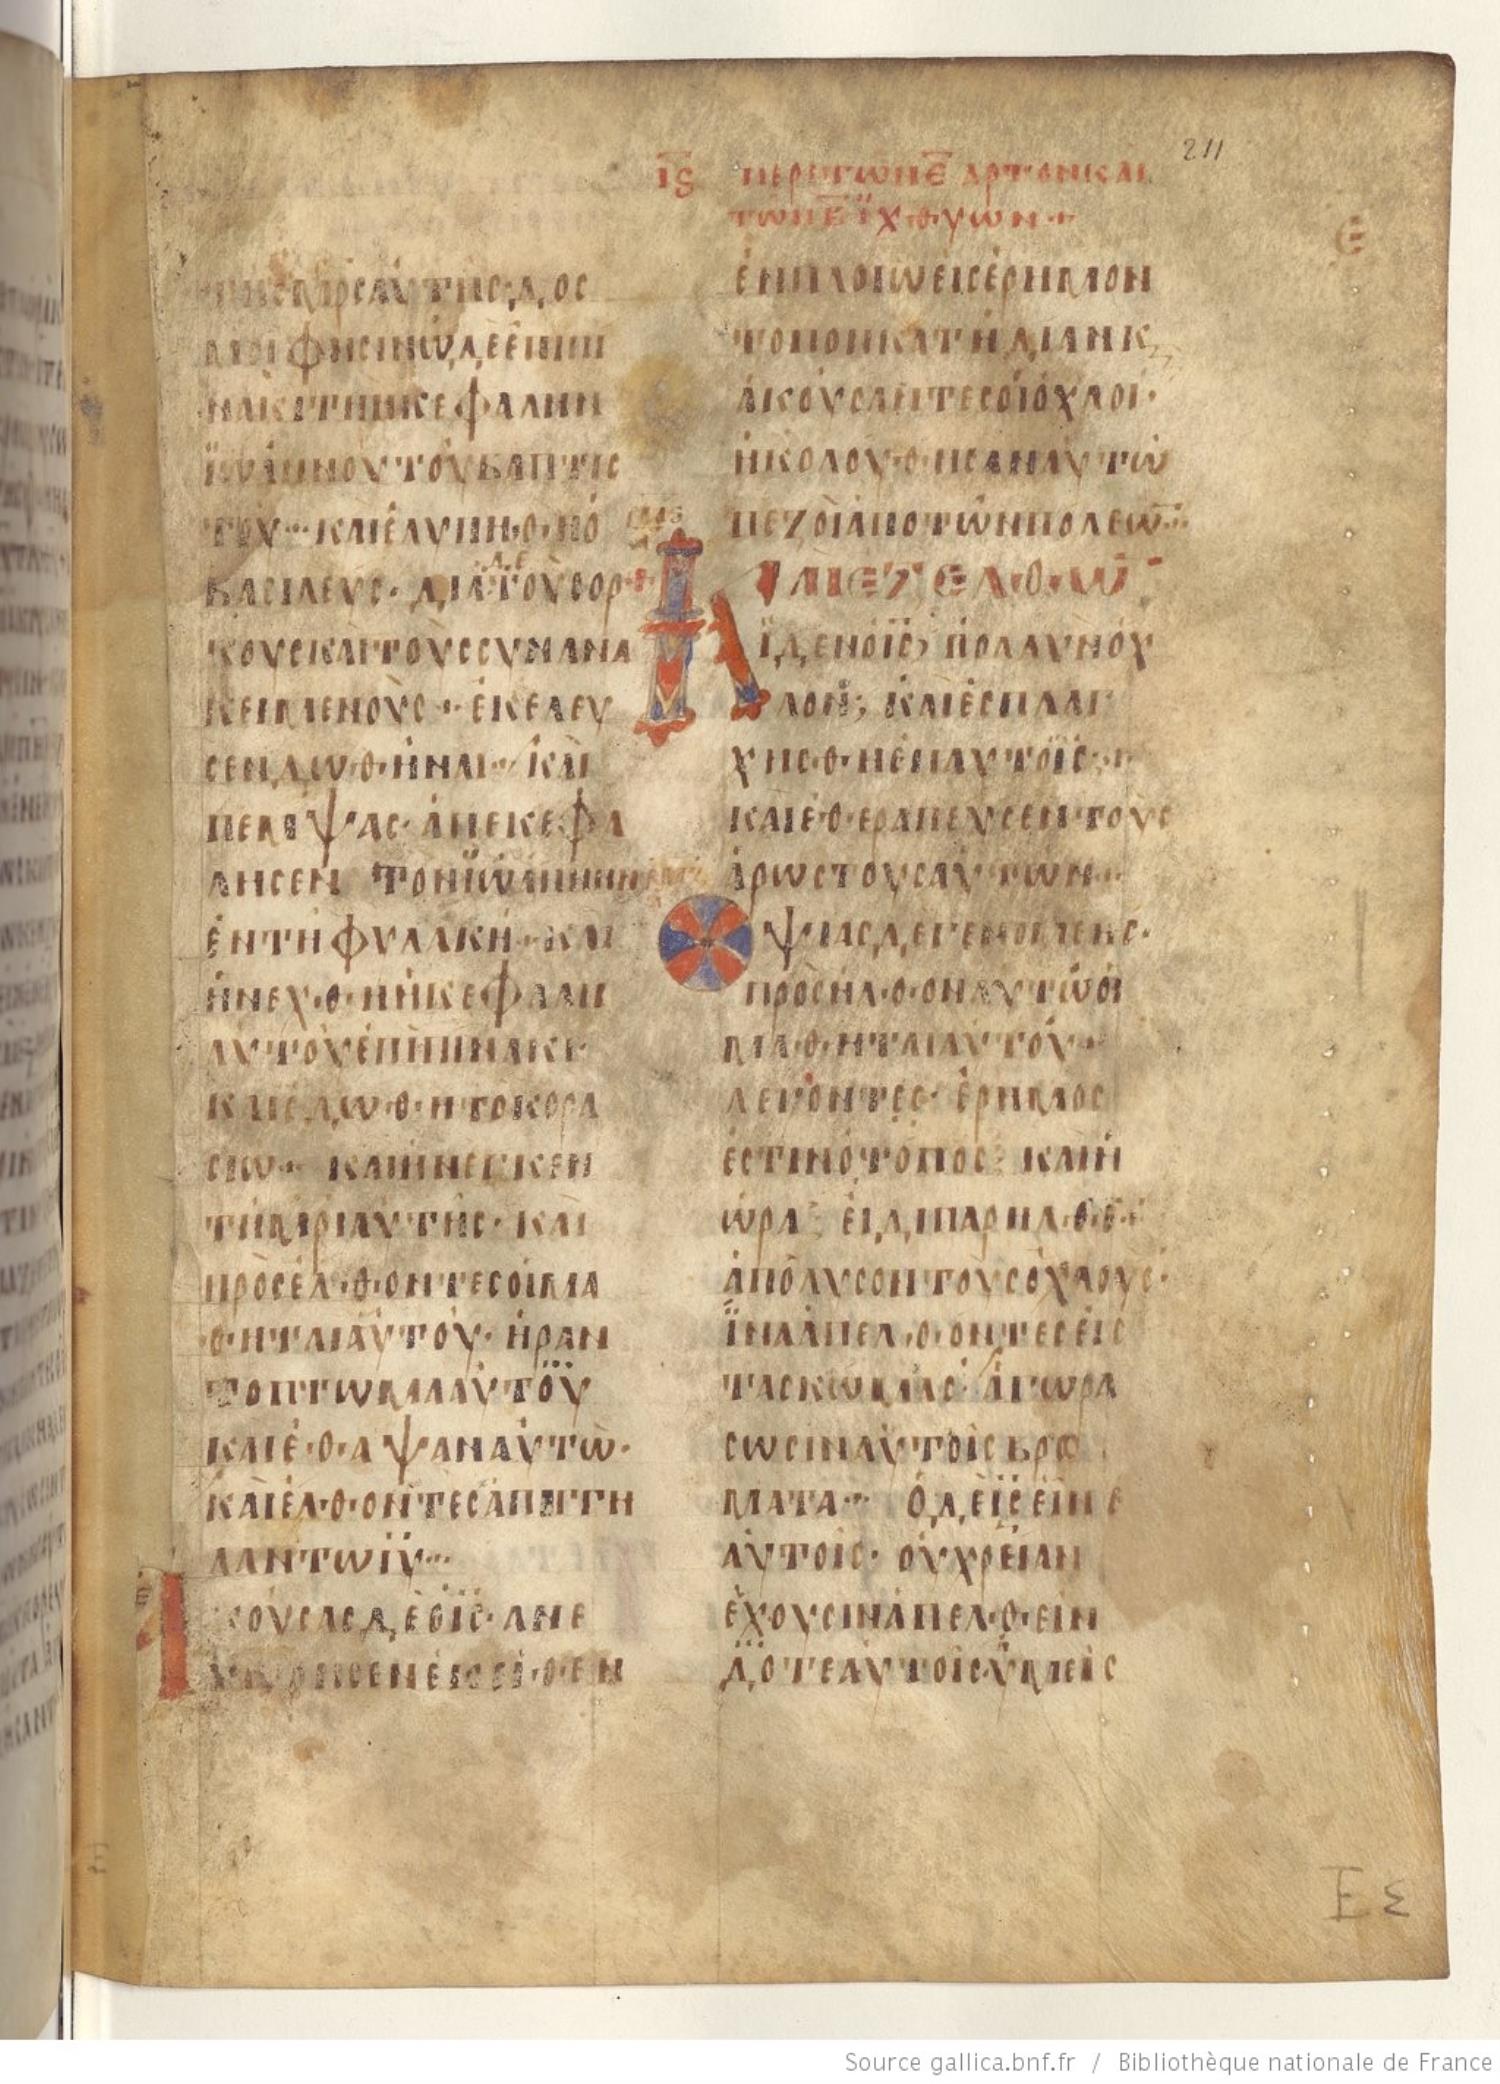 211
ΙϚ ΠΕΡΙ ΤΩΝ Ε ΑΡΤΩΝ ΚΑΙ
ΤΩΝ Β ΪΧΘΥΩΝ
Ε
ΤΗΣ ΜΡΣ ΑΥΤΗΣ· ΔΟΣ
ΜΟΙ ΦΗΣΙΝ ΩΔΕ ΕΠΙ ΠΙ
ΝΑΚΙ ΤΗΝ ΚΕΦΑΛΗΝ
ΪΩΑΝΝΟΥ ΤΟΥ ΒΑΠΤΙΣ
ΤΟΥ·· ΚΑΙ ΕΛΥΠΗΘΗ Ο
ΒΑΣΙΛΕΥΣ· ΔΙΑ ΔΕ ΤΟΥΣ ΟΡ
ΚΟΥΣ ΚΑΙ ΤΟΥΣ ΣΥΝΑΝΑ
ΚΕΙΜΕΝΟΥΣ·· ΕΚΕΛΕΥ
ΣΕΝ ΔΩΘΗΝΑΙ·· ΚΑΙ
ΠΕΜΨΑΣ· ΑΠΕΚΕΦΑ
ΛΗΣΕΝ ΤΟΝ ΪΩΑΝΝΗΝ
ΕΝ ΤΗ ΦΥΛΑΚΗ·· ΚΑΙ
ΗΝΕΧΘΗ Η ΚΕΦΑΛΗ
ΑΥΤΟΥ ΕΠΙ ΠΙΝΑΚΙ·
ΚΑΙ ΕΔΩΘΗ ΤΩ ΚΟΡΑ
ΣΙΩ·· ΚΑΙ ΗΝΕΓΚΕΝ
ΤΗ ΜΡΙ ΑΥΤΗΣ· ΚΑΙ
ΠΡΟΣΕΛΘΟΝΤΕΣ ΟΙ ΜΑ
ΘΗΤΑΙ ΑΥΤΟΥ· ΗΡΑΝ
ΤΟ ΠΤΩΜΑ ΑΥΤΟΥ
ΚΑΙ ΕΘΑΨΑΝ ΑΥΤΩ·
ΚΑΙ ΕΛΘΟΝΤΕΣ ΑΠΗΓΓΗ
ΛΑΝ ΤΩ ΙΥ··
ΑΚΟΥΣΑΣ ΔΕ Ο ΙΣ· ΑΝΕ
ΧΩΡΗΣΕΝ ΕΚΕΙΘΕΝ
ΕΝ ΠΛΟΙΩ ΕΙΣ ΕΡΗΜΟΝ
ΤΟΠΟΝ ΚΑΤ ΗΔΙΑΝ Κ,
ΑΚΟΥΣΑΝΤΕΣ ΟΙ ΟΧΛΟΙ·
ΗΚΟΛΟΥΘΗΣΑΝ ΑΥΤΩ
ΠΕΖΟΙ ΑΠΟ ΤΩΝ ΠΟΛΕΩ··
ΚΑΙ ΕΞΕΛΘΩ
Ν Ο ΙΣ; ΠΟΛΛΥΝ ΟΥ
ΛΟΝ; ΚΑΙ ΕΣΠΛΑΓ
ΧΝΣΘΗ ΕΠ ΑΥΤΟΙΣ··
ΚΑΙ ΕΘΕΡΑΠΕΥΣΕΝ ΤΟΥΣ
ΑΡΩΣΤΟΥΣ ΑΥΤΩΝ··
ΟΨΙΑΣ ΔΕ ΓΕΝΟΜΕΝΗΣ·
ΠΡΟΣΗΛΘΟΝ ΑΥΤΩ ΟΙ
ΜΑΘΗΤΑΙ ΑΥΤΟΥ··
ΛΕΓΟΝΤΕΣ· ΕΡΗΜΟΣ
ΕΣΤΙΝ Ο ΤΟΠΟΣ· ΚΑΙ Η
ΩΡΑ ΕΙΔΙ ΠΑΡΗΛΘΕ··
ΑΠΟΛΥΣΟΝ ΤΟΥΣ ΟΧΛΟΥΣ·
ΪΝΑ ΑΠΕΛΘΟΝΤΕΣ ΕΙΣ
ΤΑΣ ΚΩΜΑΣ· ΑΓΩΡΑ
ΣΩΣΙΝ ΑΥΤΟΙΣ ΒΡΩ
ΜΑΤΑ·· Ο ΔΕ ΙΣ ΕΙΠΕ
ΑΥΤΟΙΣ· ΟΥ ΧΡΕΙΑΝ
ΕΧΟΥΣΙΝ ΑΠΕΛΘΕΙΝ
ΔΟΤΕ ΑΥΤΟΙΣ ΫΜΕΙΣ
Source gallica.bnf.fr / Bibliothèque nationale de France